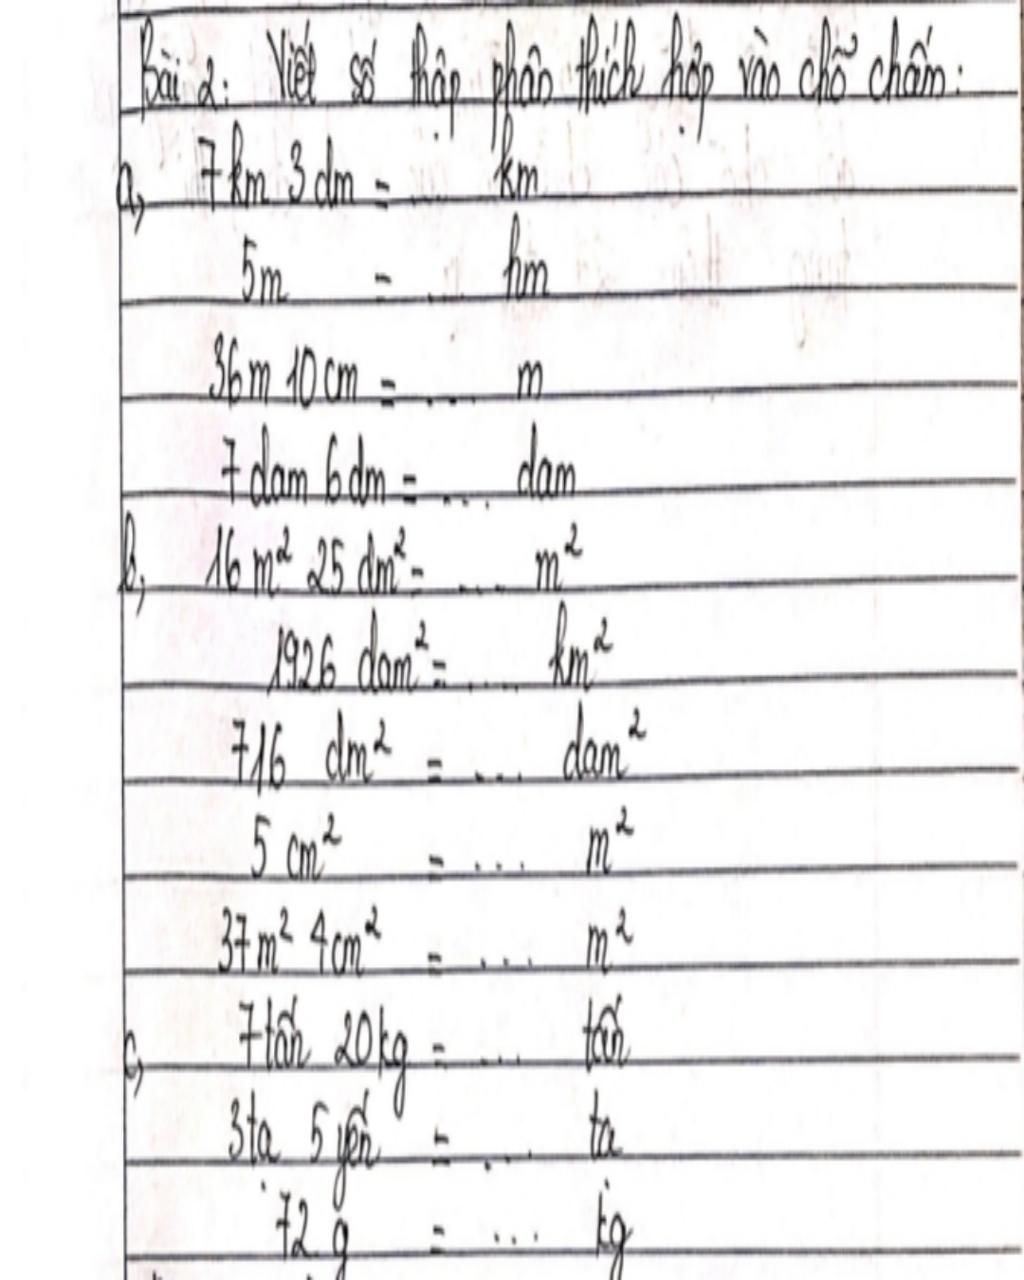 Bài 2: Viết số thập phân thích hợp vào chỗ chấm:
a, 7 km 3 dm = ... km
5m = .... hm
36m 10 cm = .... m
7 dam 6 dm = .... dam
b, 16 m² 25 dm² = .... m²
1926 dam² = .... km²
716 dm² = .... dam²
5 cm² = .... m²
37m² 4cm² = .... m²
c, 7 tấn 20 kg = .... tấn
3 tạ 5 yến = .... tạ
72 g = ... kg